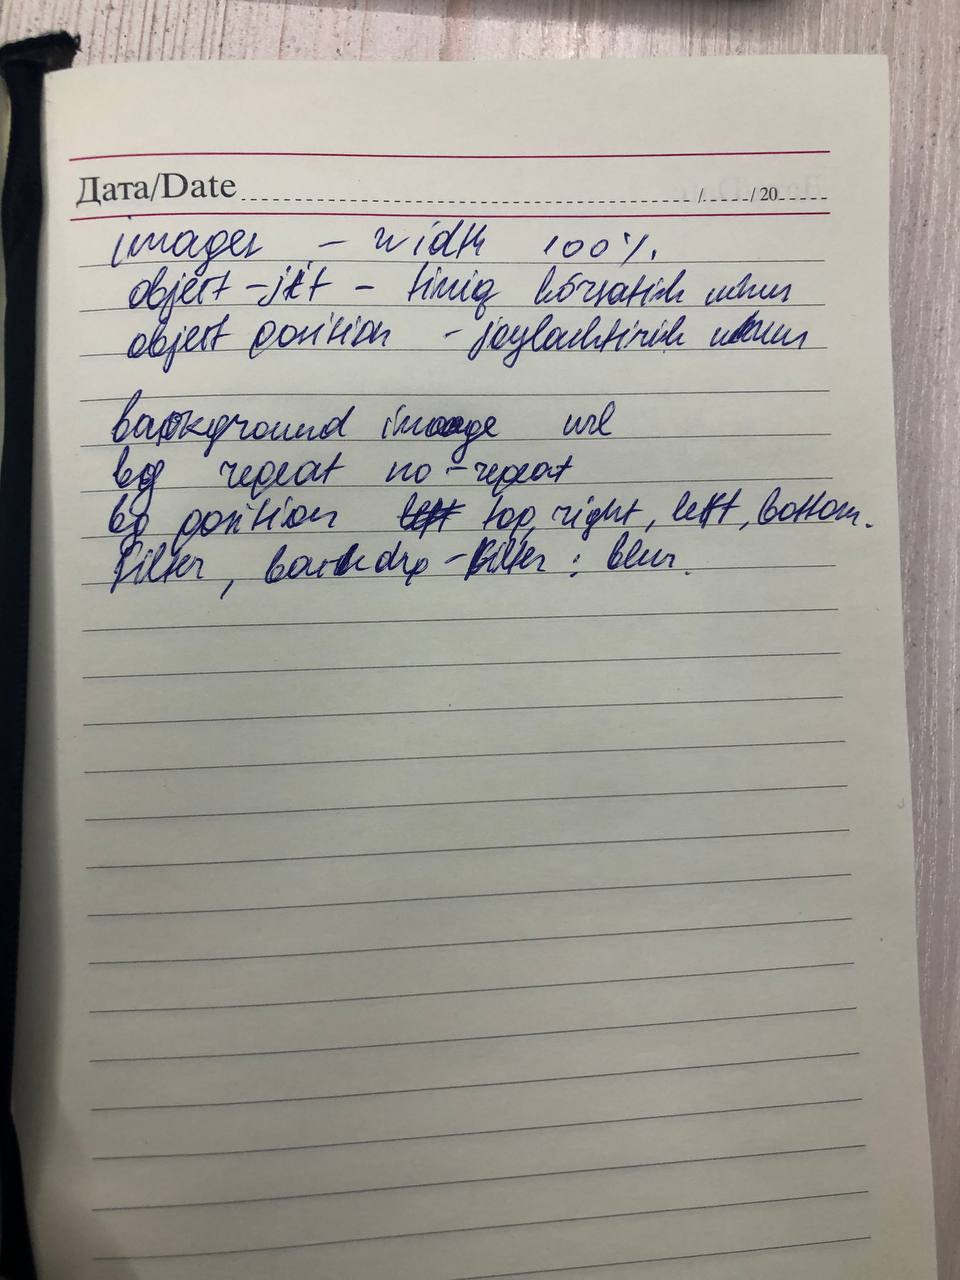 Дата/Date / / 20
images - width 100%.
object-fit - tiniq ko'rsatish uchun
object position - joylashtirish uchun
background image url
bg repeat no-repeat
bg position left top, right, left, bottom.
Filter, backdrp-filter : blur.